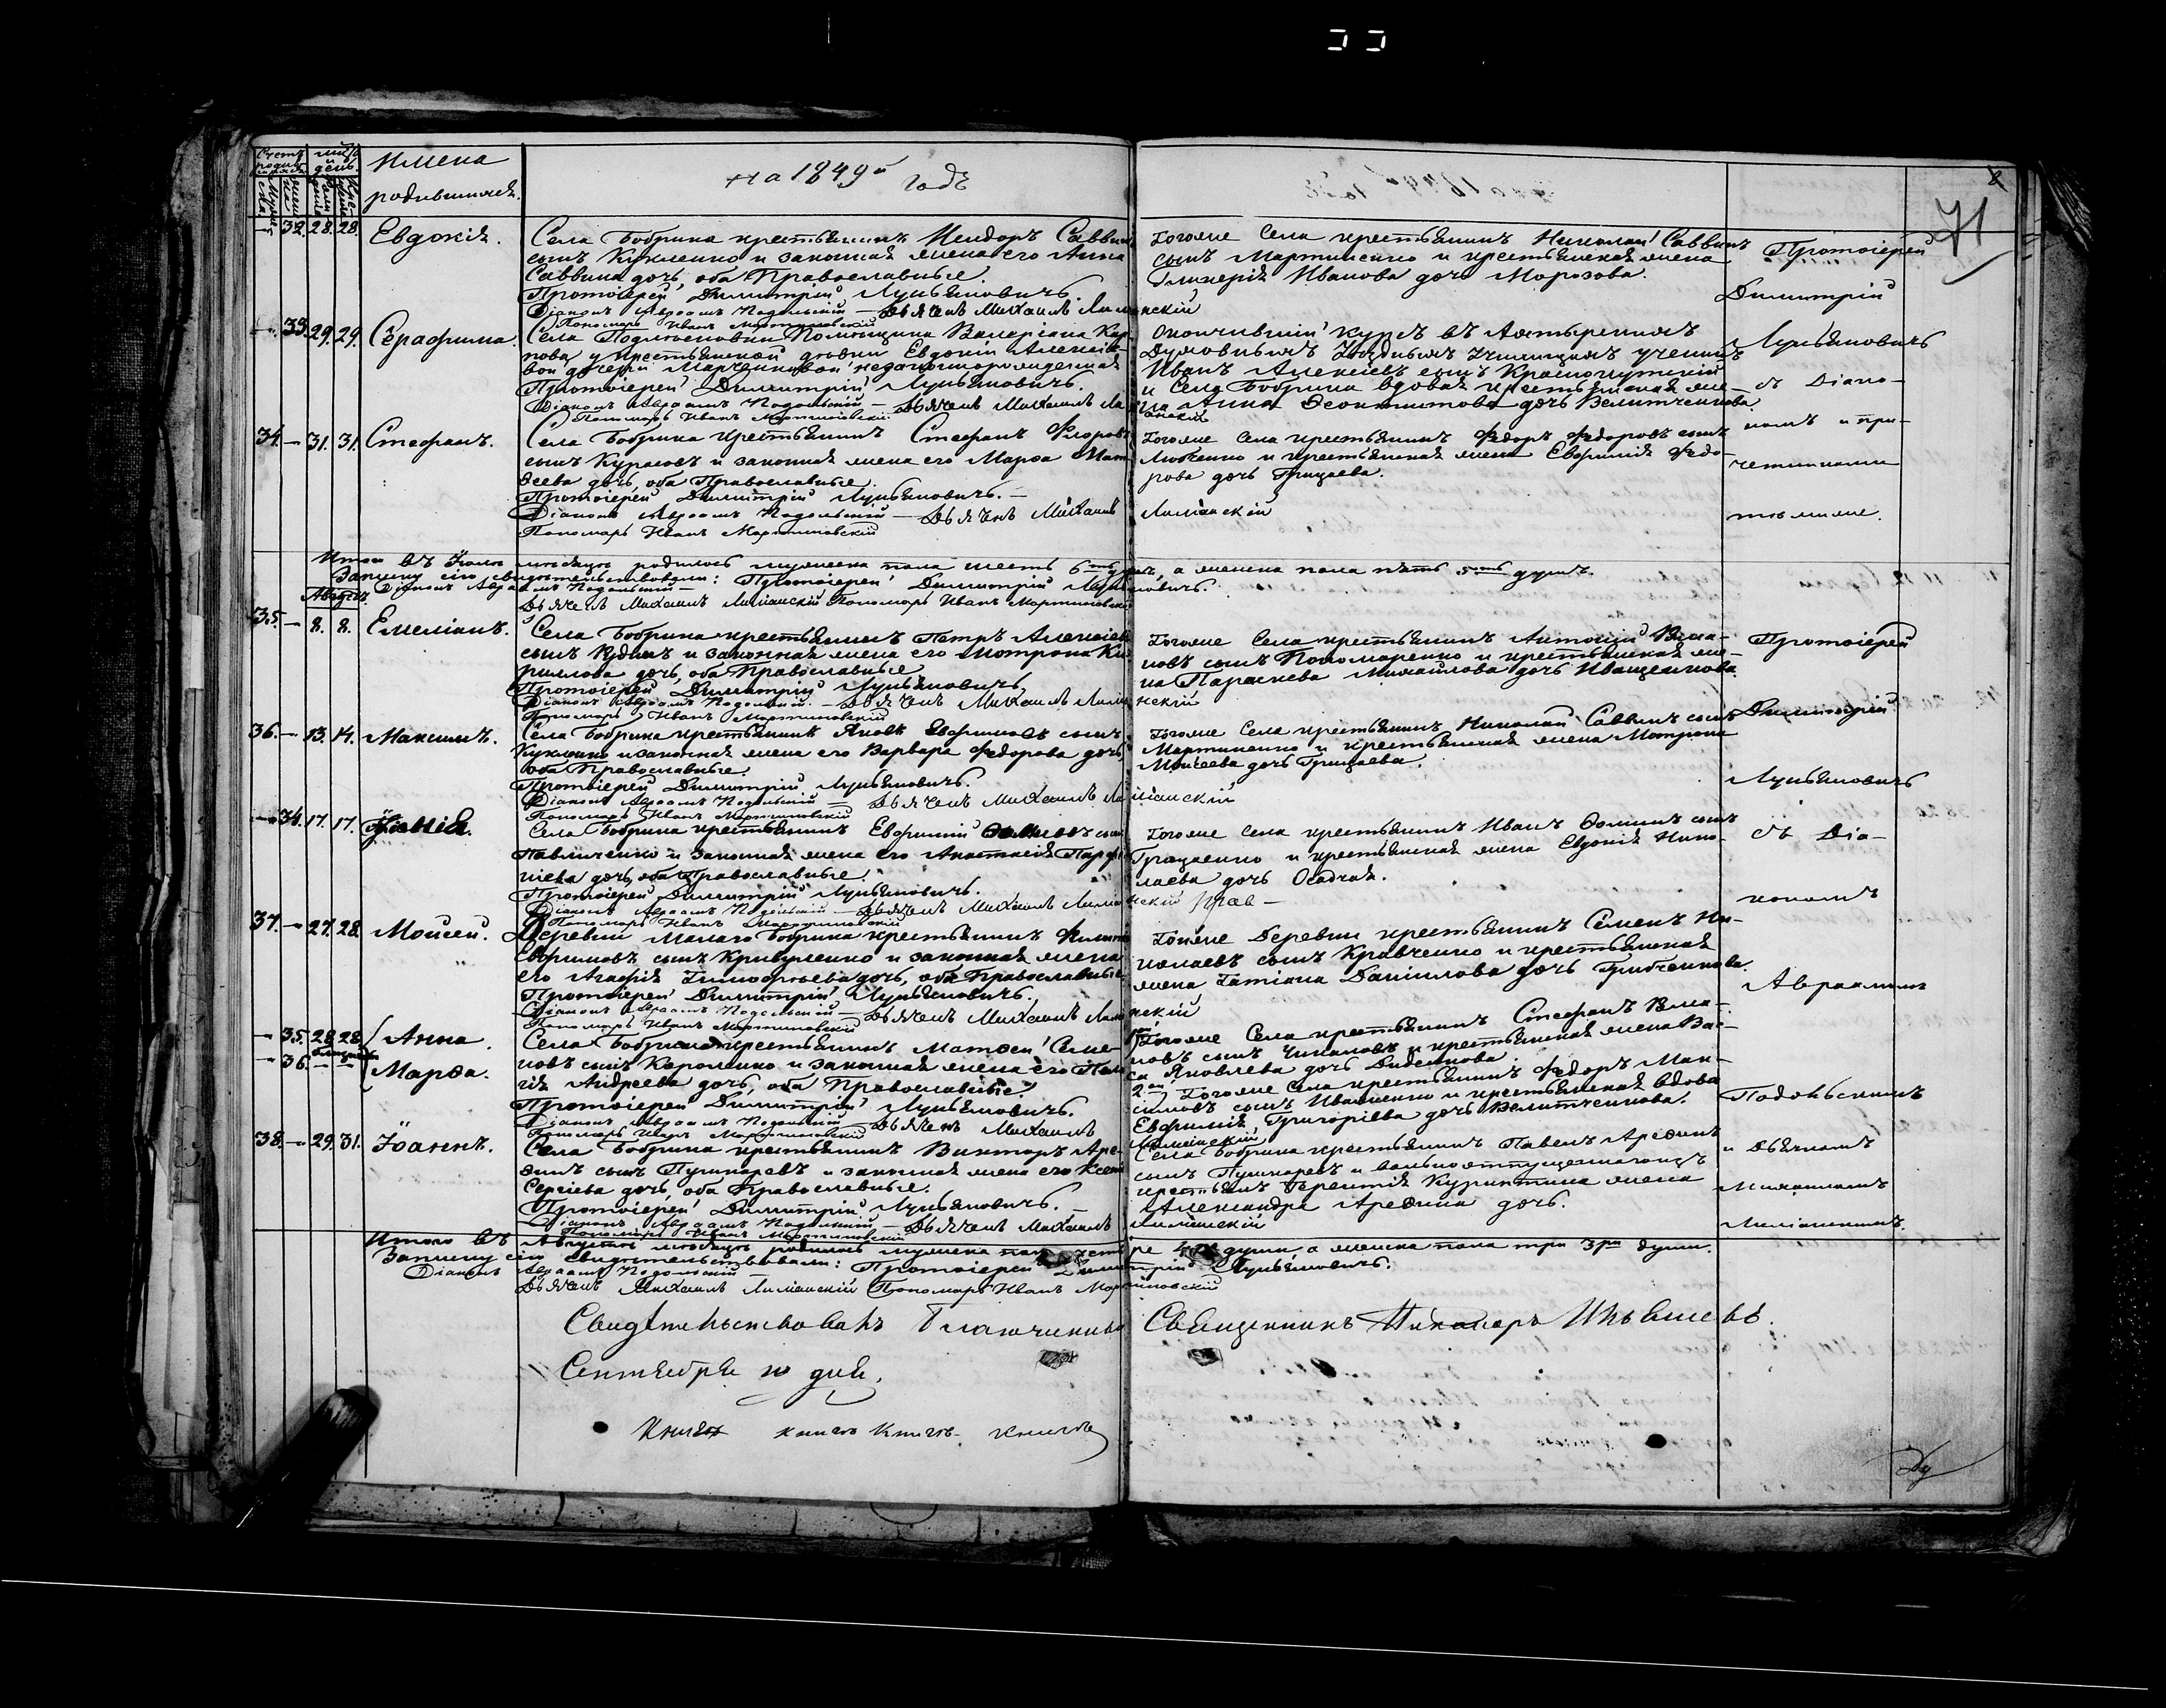 Имена
родившихся.
на 1849й годъ
71
32. 28. 28. Евдокія.
Села Бобрика крестьянинъ Исидоръ Саввинъ
сынъ Кукленко и законная жена его Анна
Саввина дочь, оба Православные.
Протоіерей Димитрій Лукьяновичъ.
Діаконъ Авраамъ Подольскій — Дьячекъ Михаилъ Лиманскій
Пономарь Иванъ Мартиновскій
тогоже Села крестьянинъ Николай Саввинъ
сынъ Мартиненко и крестьянская жена
Гликерія Иванова дочь Морозова.
Протоіерей
Димитрій
Лукьяновичъ
съ Діако-
номъ и при-
четниками
тѣмиже.
33. 29. 29. Серафима.
Села Помѣщика Валеріана Кар
пова у крестьянской дѣвки Евдокіи Алексѣе-
вой дочери незаконнорожденная
Протоіерей Димитрій Лукьяновичъ.
Діаконъ Авраамъ Подольскій — Дьячекъ Михаилъ Лиманскій
Пономарь Иванъ Мартиновскій
Окончившій курсъ въ Ахтырскихъ
Духовныхъ Уѣздныхъ Училищахъ ученикъ
Иванъ Алексѣевъ сынъ Краснокутскій
и Села Бобрика вдовая крестьянская же-
на Анна Феоктистова дочь Велитченкова.
34. — 31. 31. Стефанъ.
Села Бобрика крестьянинъ Стефанъ Флоровъ
сынъ Курасовъ и законная жена его Марѳа Мат
ѳеева дочь, оба Православные.
Протоіерей Димитрій Лукьяновичъ. —
Діаконъ Авраамъ Подольскій — Дьячекъ Михаилъ Лиманскій
Пономарь Иванъ Мартиновскій
тогоже Села крестьянинъ Федоръ Федоровъ сынъ
и крестьянская жена Евфимія Федо-
рова дочь Грицаева.
Итого въ Іюлѣ мѣсяцѣ родилось мужеска пола шесть 6ть душъ, а женска пола пять 5ть душъ.
Запись сію свидѣтельствовали: Протоіерей Димитрій Лукьяновичъ.
Діаконъ Авраамъ Подольскій —
Дьячекъ Михаилъ Лиманскій Пономарь Иванъ Мартиновскій
Августъ.
35. — 8. 8. Емеліанъ.
Села Бобрика крестьянинъ Петръ Алексѣевъ
сынъ и законная жена его Мотрона Ки
риллова дочь, оба Православные
Протоіерей Димитрій Лукьяновичъ,
Діаконъ Авраамъ Подольскій. — Дьячекъ Михаилъ Лиманскій
Пономарь Иванъ Мартиновскій
тогоже Села крестьянинъ Антоній Влас-
овъ сынъ Пономаренко и крестьянская же-
на Параскева Михайлова дочь Иващенкова.
Протоіерей
Димитрій
Лукьяновичъ
съ Діа-
кономъ
Авраамомъ
Подольскимъ
и Дьячкомъ
Михаиломъ
Лиманскимъ.
36. — 13. 14. Максимъ.
Села Бобрика крестьянинъ Яковъ Евфимовъ сынъ
Кукленко и законная жена его Варвара Федорова дочь,
оба Православные.
Протоіерей Димитрій Лукьяновичъ.
Діаконъ Авраамъ Подольскій — Дьячекъ Михаилъ Лиманскій
Пономарь Иванъ Мартиновскій
тогоже Села крестьянинъ Николай Саввинъ сынъ
Мартиненко и крестьянская жена Мотрона
Моисеева дочь Грицаева.
34. 17. 17.
Села Бобрика крестьянинъ Евфимій сынъ
Павличенко и законная жена его Анастасія Парфе
ніева дочь, оба Православные.
Протоіерей Димитрій Лукьяновичъ.
Діаконъ Авраамъ Подольскій — Дьячекъ Михаилъ Лиманскій
Пономарь Иванъ Мартиновскій
тогоже Села крестьянинъ Иванъ Ѳоминъ сынъ
Грицаенко и крестьянская жена Евдокія Нико-
лаева дочь Осадчая.
37. — 27. 28. Моисей.
Деревни Малаго Бобрика крестьянинъ Филипъ
Евфимовъ сынъ Кривуленко и законная жена
его Агафія Тимофѣева дочь, оба Православные.
Протоіерей Димитрій Лукьяновичъ.
Діаконъ Авраамъ Подольскій — Дьячекъ Михаилъ Лиманскій
Пономарь Иванъ Мартиновскій
тойже Деревни крестьянинъ Семенъ Ни-
колаевъ сынъ Кравченко и крестьянская
жена Татіана Даніилова дочь Грибченкова.
— 35. 28. 28. Анна.
близнецы
— 36. — — Марѳа.
Села Бобрика крестьянинъ Матѳей Семе-
новъ сынъ Короленко и законная жена его Пела
гія Андреева дочь, оба Православные.
Протоіерей Димитрій Лукьяновичъ.
Діаконъ Авраамъ Подольскій — Дьячекъ Михаилъ Лиманскій
Пономарь Иванъ Мартиновскій
тогоже Села крестьянинъ Стефанъ Влас-
овъ сынъ Чикаловъ и крестьянская жена Вас-
са Яковлева дочь Диденкова.
2й) Тогоже Села крестьянинъ Федоръ Мак-
симовъ сынъ Ивашенко и крестьянская вдова
Евфимія Григоріева дочь Велитченкова.
38. — 29. 31. Іоаннъ.
Села Бобрика крестьянинъ Викторъ Аре-
ѳинъ сынъ Пушкаревъ и законная жена его Ксенія
Сергіева дочь, оба Православные.
Протоіерей Димитрій Лукьяновичъ. —
Діаконъ Авраамъ Подольскій — Дьячекъ Михаилъ Лиманскій
Пономарь Иванъ Мартиновскій
Села Бобрика крестьянинъ Павелъ Ареѳинъ
сынъ Пушкаревъ и вольноотпущеннаго изъ
крестьянъ Терентія Курихтина жена
Александра Ареѳина дочь.
Итого въ Августѣ мѣсяцѣ родилось мужеска пола четыре души, а женска пола три 3ри души.
Запись сію свидѣтельствовали: Протоіерей Димитрій Лукьяновичъ.
Діаконъ Авраамъ Подольскій —
Дьячекъ Михаилъ Лиманскій Пономарь Иванъ Мартиновскій
Свидѣтельствовалъ Благочинный Священникъ
Сентября 10 дня.
книгъ книгъ